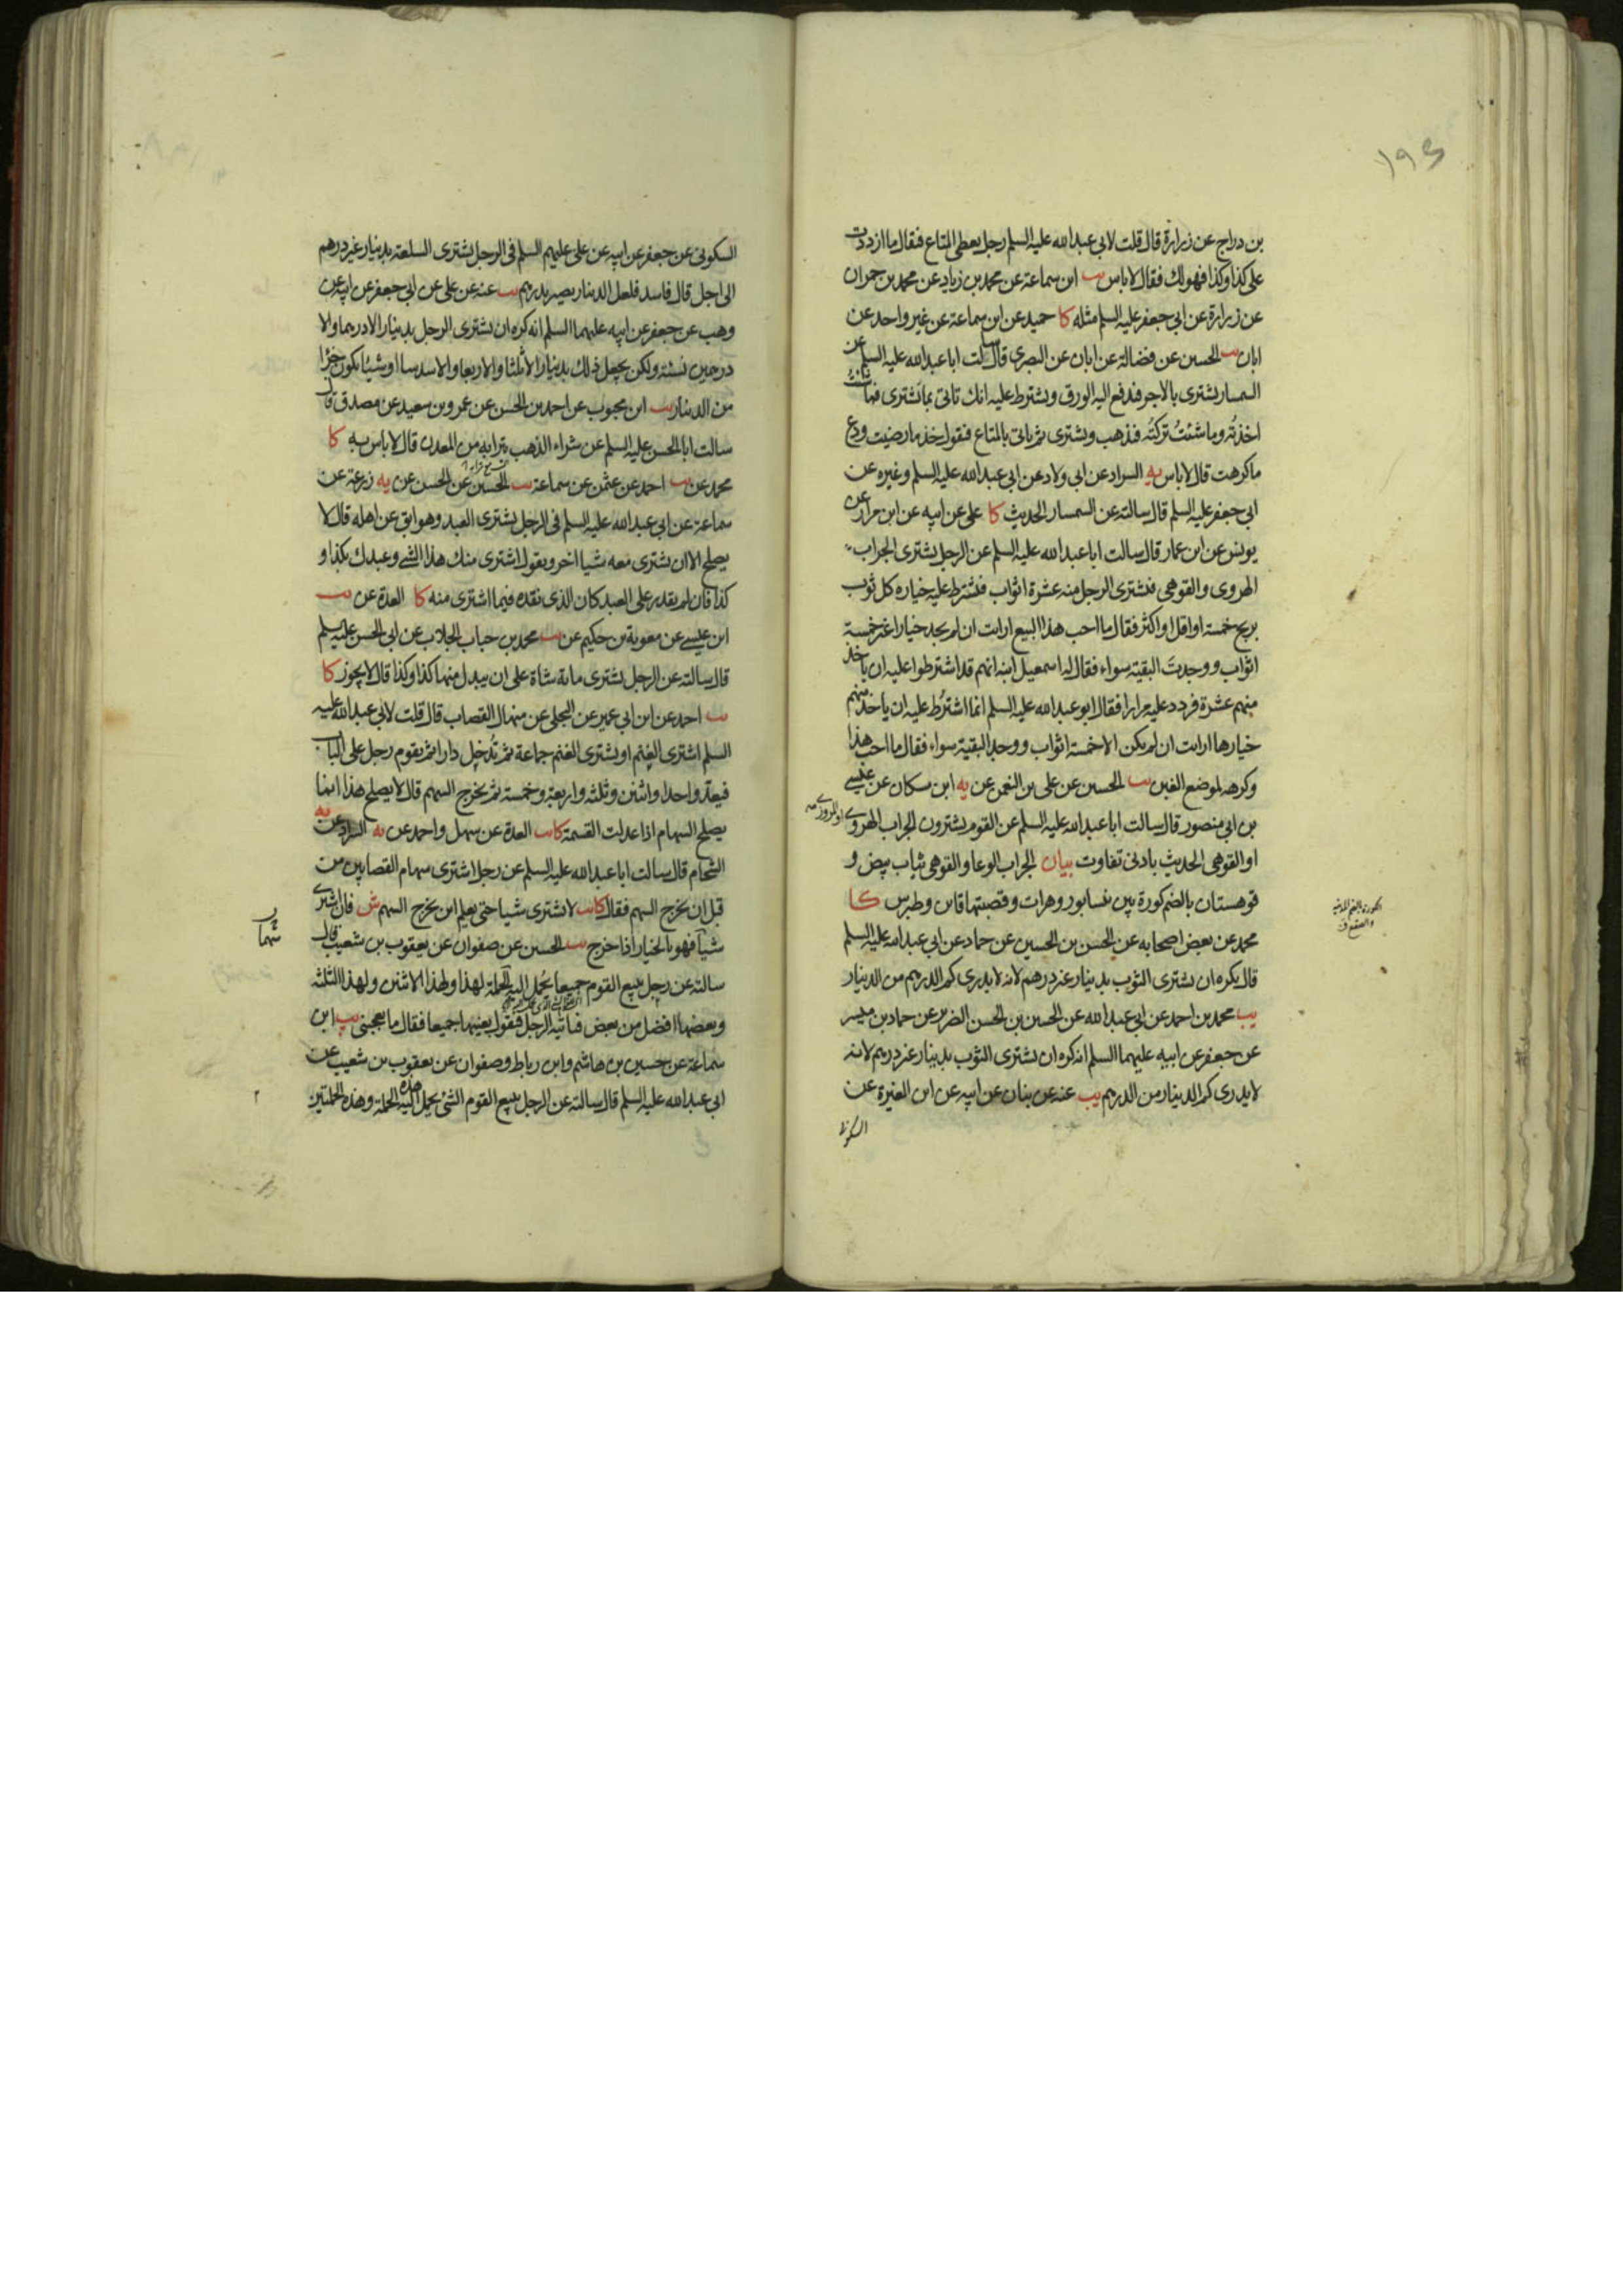 ۱۹۵
بن دراج عن زرارة قال قلت لابي عبدالله عليه السلم رجل يعطي المتاع فقال ما ازددت
على كذا وكذا فهو لك فقال لا باس يب ابن سماعة عن محمد بن زياد عن محمد بن حمران
عن زرارة عن ابي جعفر عليه السلم مثله كا حميد عن ابن سماعة عن غير واحد عن
ابان يب الحسين عن فضالة عن ابان عن البصري قال سالت ابا عبدالله عليه السلم عن
السمسار يشترى بالاجر فيدفع اليه الورق ويشترط عليه انك تاتي بما تشترى فما شئت
اخذته وما شئت تركته فذهب ويشترى ثم ياتي بالمتاع فيقول خذ ما رضيت ودع
ما كرهت قال لا باس يه السراد عن ابي ولاد عن ابي عبدالله عليه السلم وغيره عن
ابي جعفر عليه السلم قال سالته عن السمسار الحديث كا على عن ابيه عن ابن مرار عن
يونس عن ابن عمار قال سالت ابا عبدالله عليه السلم عن الرجل يشترى الجراب
الهروى والقوهى فيشترى الرجل منه عشرة اثواب فيشترط عليه خياره كل ثوب
بربح خمسة او اقل او اكثر فقال ما احب هذا البيع ارايت ان لم يجد خيارا غير خمسة
اثواب ووجدت البقية سواء فقال له اسمعيل ابنه انهم قد اشترطوا عليه ان ياخذ
منهم عشرة فردد عليه مرارا فقال ابو عبدالله عليه السلم انما اشترط عليه ان ياخذ منهم
خيارها ارايت ان لم يكن الا خمسة اثواب ووجد البقية سواء فقال ما احب هذا
وكرهه لموضع الغبن يب الحسين عن على بن النعمن عن يه ابن مسكان عن عيسى
بن ابي منصور قال سالت ابا عبدالله عليه السلم عن القوم يشترون الجراب الهروى
او المروزى
او القوهى الحديث بادنى تفاوت بيان الجراب الوعا والقوهى ثياب بيض و
قوهستان بالضم كورة بين نيسابور وهرات وقصبتها قاين وطبرس كا
محمد عن بعض اصحابه عن الحسن بن الحسين عن حماد عن ابي عبدالله عليه السلم
قال يكره ان يشترى الثوب بدينار غير درهم لانه لا يدرى كم الدرهم من الدينار
يب محمد بن احمد عن ابي عبدالله عن الحسين بن الحسن الضرير عن حماد بن ميسر
عن جعفر عن ابيه عليهما السلم انه كره ان يشترى الثوب بدينار غير درهم لانه
لا يدرى كم الدينار من الدرهم يب عنه عن بنان عن ابيه عن ابن المغيرة عن
السكونى
السكونى عن جعفر عن ابيه عن على عليهم السلم في الرجل يشترى السلعة بدينار غير درهم
الى اجل قال فاسد فلعل الدينار يصير بدرهم يب عنه عن على عن ابي جعفر عن ابيه عن
وهب عن جعفر عن ابيه عليهما السلم انه كره ان يشترى الرجل بدينار الا درهما والا
درهمين نسئة ولكن يجعل ذلك بدينار الا ثلثا والا ربعا والا سدسا او شيئا يكون جزءا
من الدينار يب ابن محبوب عن احمد بن الحسن عن عمرو بن سعيد عن مصدق قال
سالت ابا الحسن عليه السلم عن شراء الذهب بترابه من المعدن قال لا باس به كا
محمد عن يب احمد عن عثمن عن سماعة يب الحسين عن الحسن عن يه زرعة عن
سماعة عن ابي عبدالله عليه السلم في الرجل يشترى العبد وهو ابق عن اهله قال لا
يصلح الا ان يشترى معه شيا اخر ويقول اشترى منك هذا الشئ وعبدك بكذا و
كذا فان لم يقدر على العبد كان الذى نقده فيما اشترى منه كا العدة عن يب
ابن عيسى عن معوية بن حكيم عن يب محمد بن حباب الجلاب عن ابي الحسن عليه السلم
قال سالته عن الرجل يشترى مائة شاة على ان يبدل منها كذا وكذا قال لا يجوز كا
يب احمد عن ابن ابي عمير عن البجلى عن منهال القصاب قال قلت لابي عبدالله عليه
السلم اشترى الغنم او يشترى الغنم جماعة ثم تدخل دارا ثم يقوم رجل على الباب
فيعد واحدا واثنين وثلثة واربعة وخمسة ثم يخرج السهم قال لا يصلح هذا انما
يصلح السهام اذا عدلت القسمة كا يب العدة عن سهل واحمد عن يه السراد عن
الشحام قال سالت ابا عبدالله عليه السلم عن رجل اشترى سهام القصابين من
قبل ان يخرج السهم فقال كا يب لا تشترى شيا حتى يعلم اين يخرج السهم ش فان اشترى
شيئا فهو بالخيار اذا خرج يب الحسين عن صفوان عن يعقوب بن شعيب قال
سالته عن رجل يبيع القوم جميعا يحمل اليه الحملة لهذا ولهذا الاثنين ولهذا الثلثة
وبعضها افضل من بعض فياتيه الرجل فيقول بعنيها جميعا فقال ما يعجبنى يب ابن
سماعة عن حسين بن هاشم وابن رباط وصفوان عن يعقوب بن شعيب عن
ابي عبدالله عليه السلم قال سالته عن الرجل يبيع القوم الشئ يحمل اليه هذه الحملة وهذه الحملتين